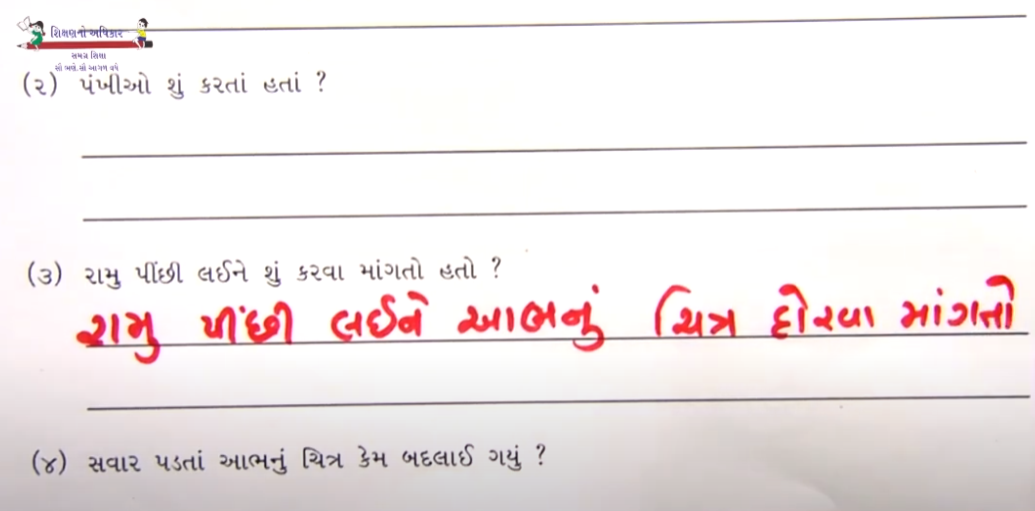 શિક્ષણનો અધિકાર
સમગ્ર શિક્ષા
સૌ ભણે. સૌ આગળ વધે
(૨) પંખીઓ શું કરતાં હતાં ?
(૩) રામુ પીંછી લઈને શું કરવા માંગતો હતો ?
રામુ પીંછી લઈને આભનું ચિત્ર દોરવા માંગતો
(૪) સવાર પડતાં આભનું ચિત્ર કેમ બદલાઈ ગયું ?